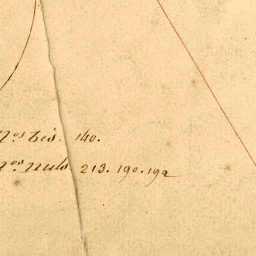 Nos bis. 140.
Nos nuls 213. 190. 192